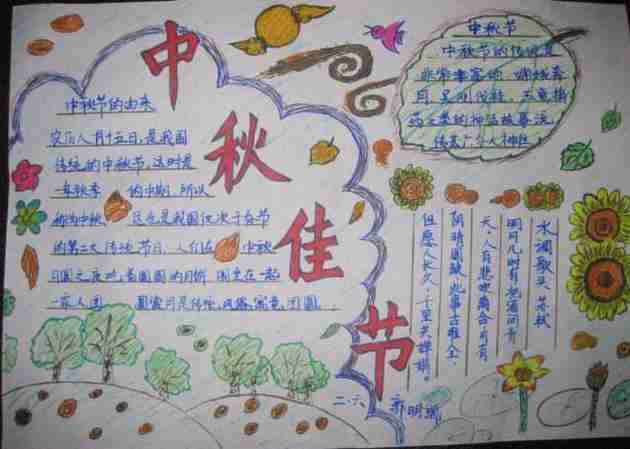 中秋佳节
中秋节的由来
农历八月十五日,是我国
传统的中秋节,这时是
一年秋季 的中期,所以
称为中秋 这也是我国仅次于春节
的第二大传统节日,人们在 中秋
月圆之夜吃着圆圆的月饼 围坐在一起
一家人团 团圆
中秋节
中秋节的传说是
非常丰富的,嫦娥奔
月,吴刚伐桂,玉兔捣
药之类的神话故事流
传甚广
水调歌头 苏轼
明月几时有,把酒问青
天,人有悲欢离合,月有
阴晴圆缺,此事古难全,
但愿人长久,千里共婵娟。
二.六